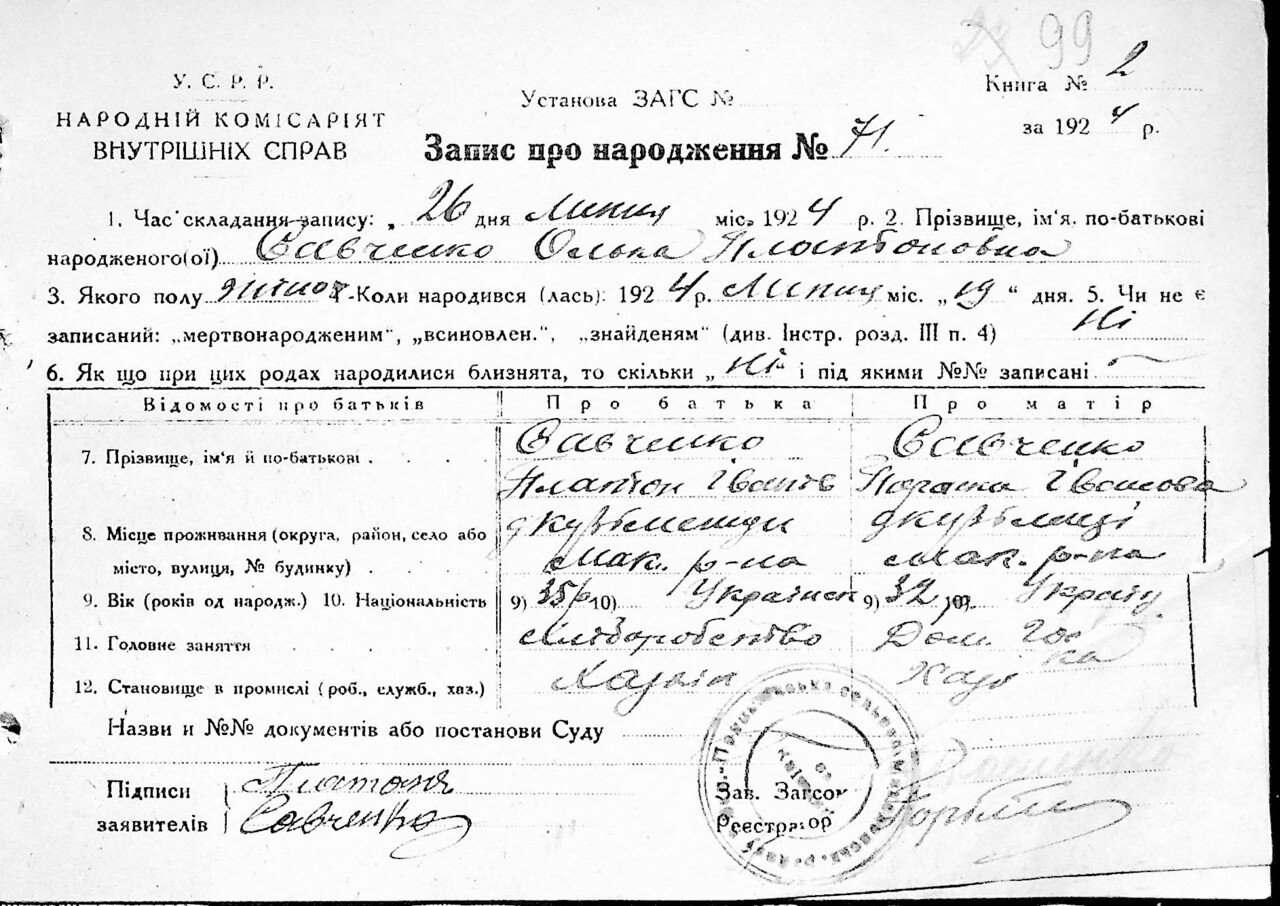 99
У. С. Р. Р.
НАРОДНІЙ КОМІСАРІЯТ
ВНУТРІШНІХ СПРАВ
Установа ЗАГС №
Книга № 2
за 1924 р.
Запис про народження № 71.
1. Час складання запису: „ 26 дня Липня міс. 1924 р. 2. Прізвище, ім'я. по-батькові
народженого(ої) Савченко Олька Платоновна
3. Якого полу жіноч 4-Коли народився (лась): 1924 р. Липня міс. „19“ дня. 5. Чи не є
записаний: „мертвонародженим“, „всиновлен.“, „знайденям“ (див. Інстр. розд. III п. 4) Ні
6. Як що при цих родах народилися близнята, то скільки „ Ні і під якими №№ записані
Відомості про батьків Про батька Про матір
7. Прізвище, ім'я й по-батькові Савченко Савченко
Платон Іванів Параска Іванова
8. Місце проживання (округа, район, село або
місто, вулиця, № будинку) Мак. р-на Мак. р-на
9. Вік (років од народж.) 10. Національність 9) 35 10) Українец 9) 32 10) Україн.
11. Головне заняття Хліборобство Дом. Гос
12. Становище в промислі (роб., служб., хаз.) Хазяін Хазяйка
Назви и №№ документів або постанови Суду
Підписи
заявителів
Платон
Савченко
Зав. Загсом
Реєстратор